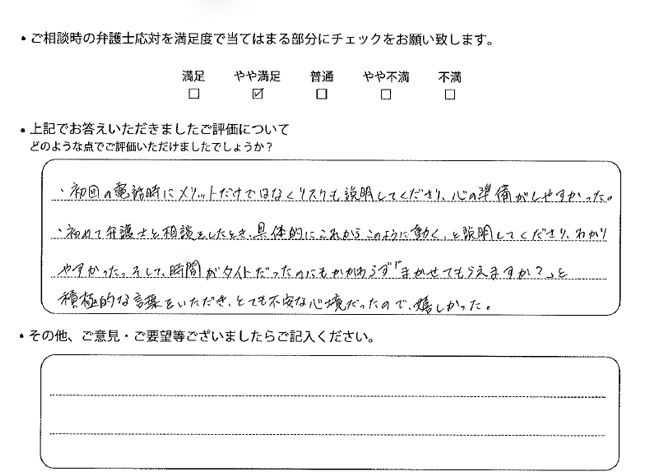 ・ご相談時の弁護士応対を満足度で当てはまる部分にチェックをお願い致します。
満足 やや満足 普通 やや不満 不満
□ ☑ □ □ □
・上記でお答えいただきましたご評価について
どのような点でご評価いただけましたでしょうか？
・初回の電話時にメリットだけではなくリスクも説明してくださり、心の準備がしやすかった。
・初めて弁護士と相談をしたとき、具体的にこれからこのように動く、と説明してくださり、わかり
やすかった。そして、時間がタイトだったのにもかかわらず「まかせてもらえますか？」と
積極的な言葉をいただき、とても不安な心境だったので、嬉しかった。
・その他、ご意見・ご要望等ございましたらご記入ください。